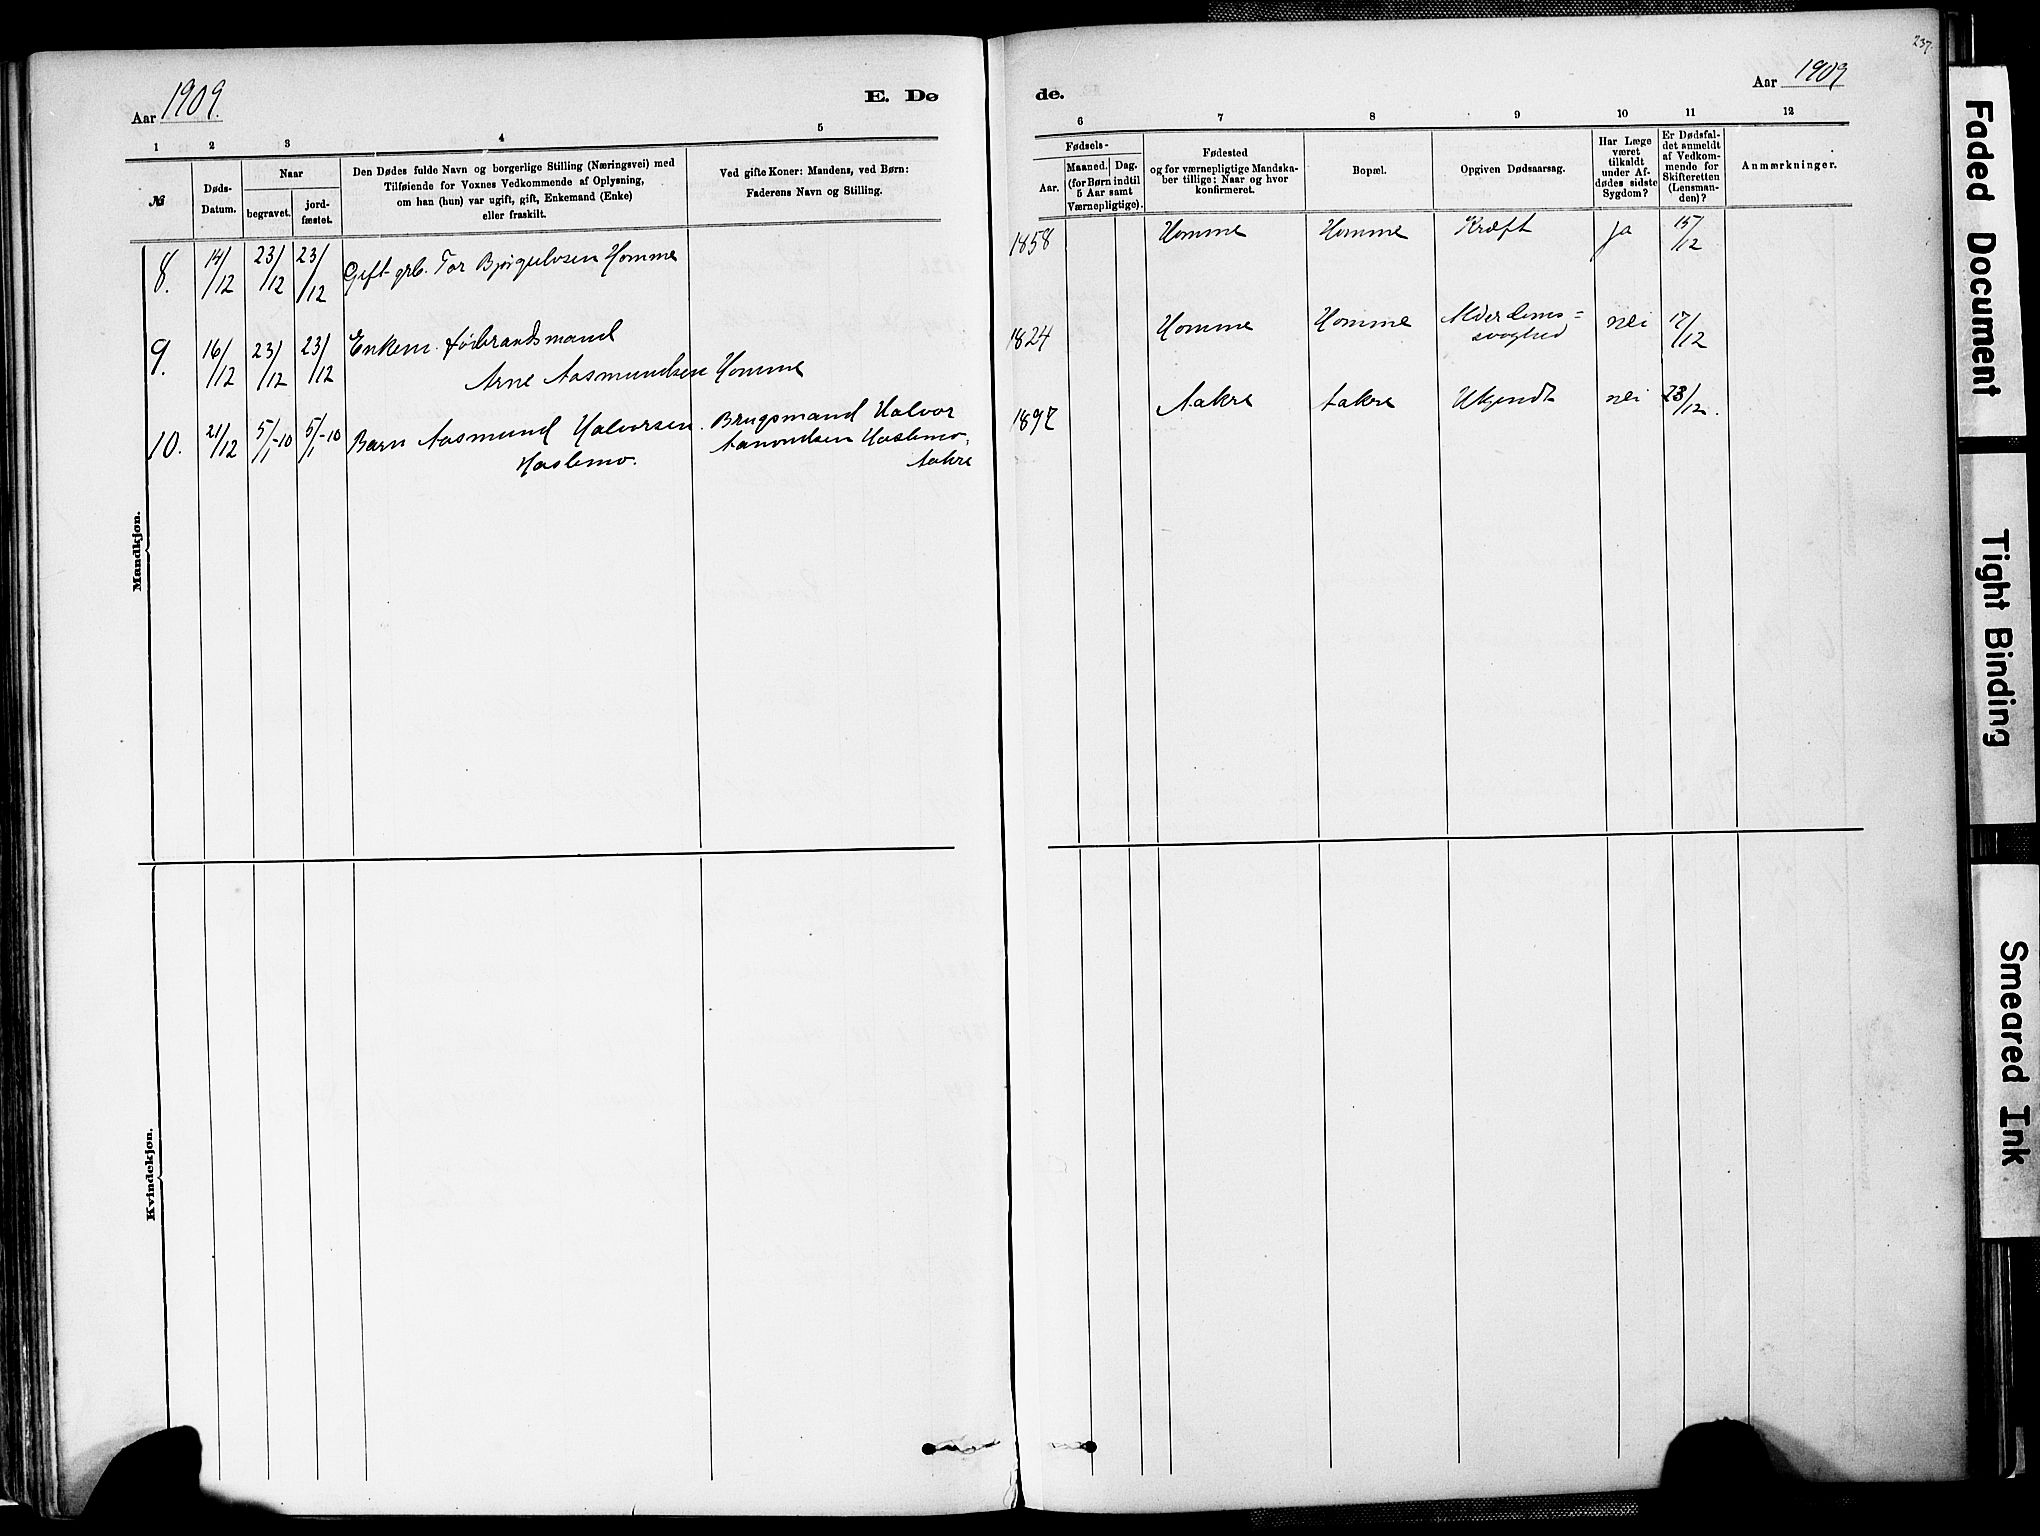 237.
Aar 1909.
E. Dø
de.
Aar 1909
1 2 3 4 5
6 7 8 9 10 11 12
№
Døds-
Datum.
Naar
begravet.
jord-
fæstet.
Den Dødes fulde Navn og borgerlige Stilling (Næringsvei) med
Tilføiende for Voxnes Vedkommende af Oplysning,
om han (hun) var ugift, gift, Enkemand (Enke)
eller fraskilt.
Ved gifte Koner: Mandens, ved Børn:
Faderens Navn og Stilling.
Fødsels-
Aar.
Maaned. Dag.
(for Børn indtil
5 Aar samt
Værnepligtige).
Fødested
og for værnepligtige Mandska-
ber tillige: Naar og hvor
konfirmeret.
Bopæl.
Opgiven Dødsaarsag.
Har Læge
været
tilkaldt
under Af-
dødes sidste
Sygdom?
Er Dødsfal-
det anmeldt
af Vedkom-
mende for
Skifteretten
(Lensman-
den)?
Anmærkninger.
Mandkjøn.
8. 14/12 23/12 23/12 Gift grb. Tor Bjørgulvsen Homme
1858 Homme Homme Kræft ja 15/12
9. 16/12 23/12 23/12 Enkem. Føderaadsmand
Arne Aasmundsen Homme
1824 Homme Homme Alderdoms=
svaghed nei 17/12
10. 21/12 5/1-10 5/1-10 Barn Aasmund Halvorsen. Brugsmand Halvor
Haslemo. Aanondsen Haslemo,
Aakre
1897 Aakre Aakre Ukjendt nei 23/12.
Kvindekjøn.
Faded Document
Tight Binding
Smeared Ink